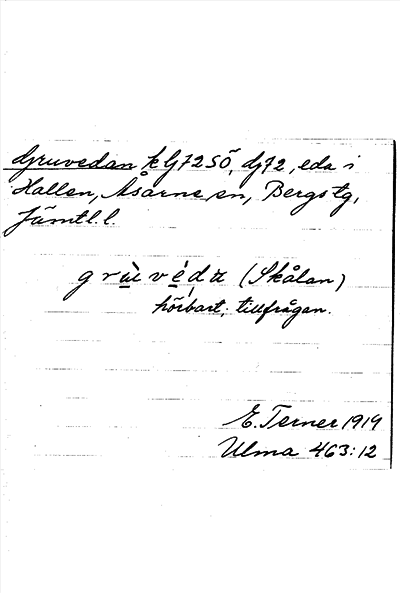 Gruvedan klj72SÖ, dj72, eda i
Hallen, Åsarne sn, Bergs tg,
Jämtl. l.
grùvédɑ (Skålan)
hörbart, tillfrågan.
E. Terner 1919
Ulma 463:12